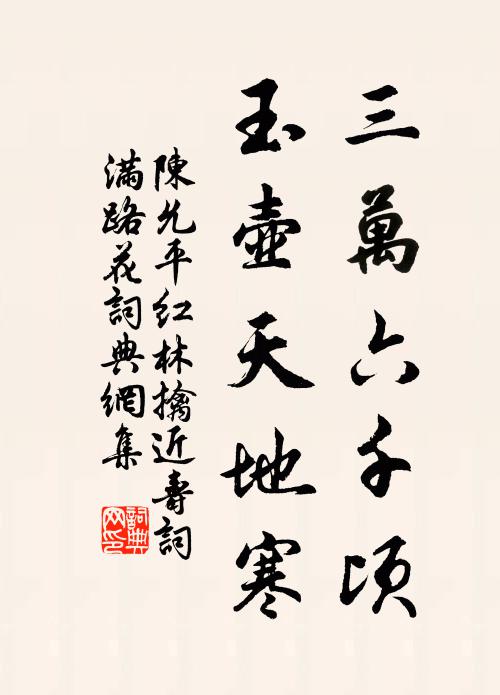 三萬六千頃
玉壺天地寒
陳允平紅林擒近壽詞
滿路花詞典網集
詞典網印